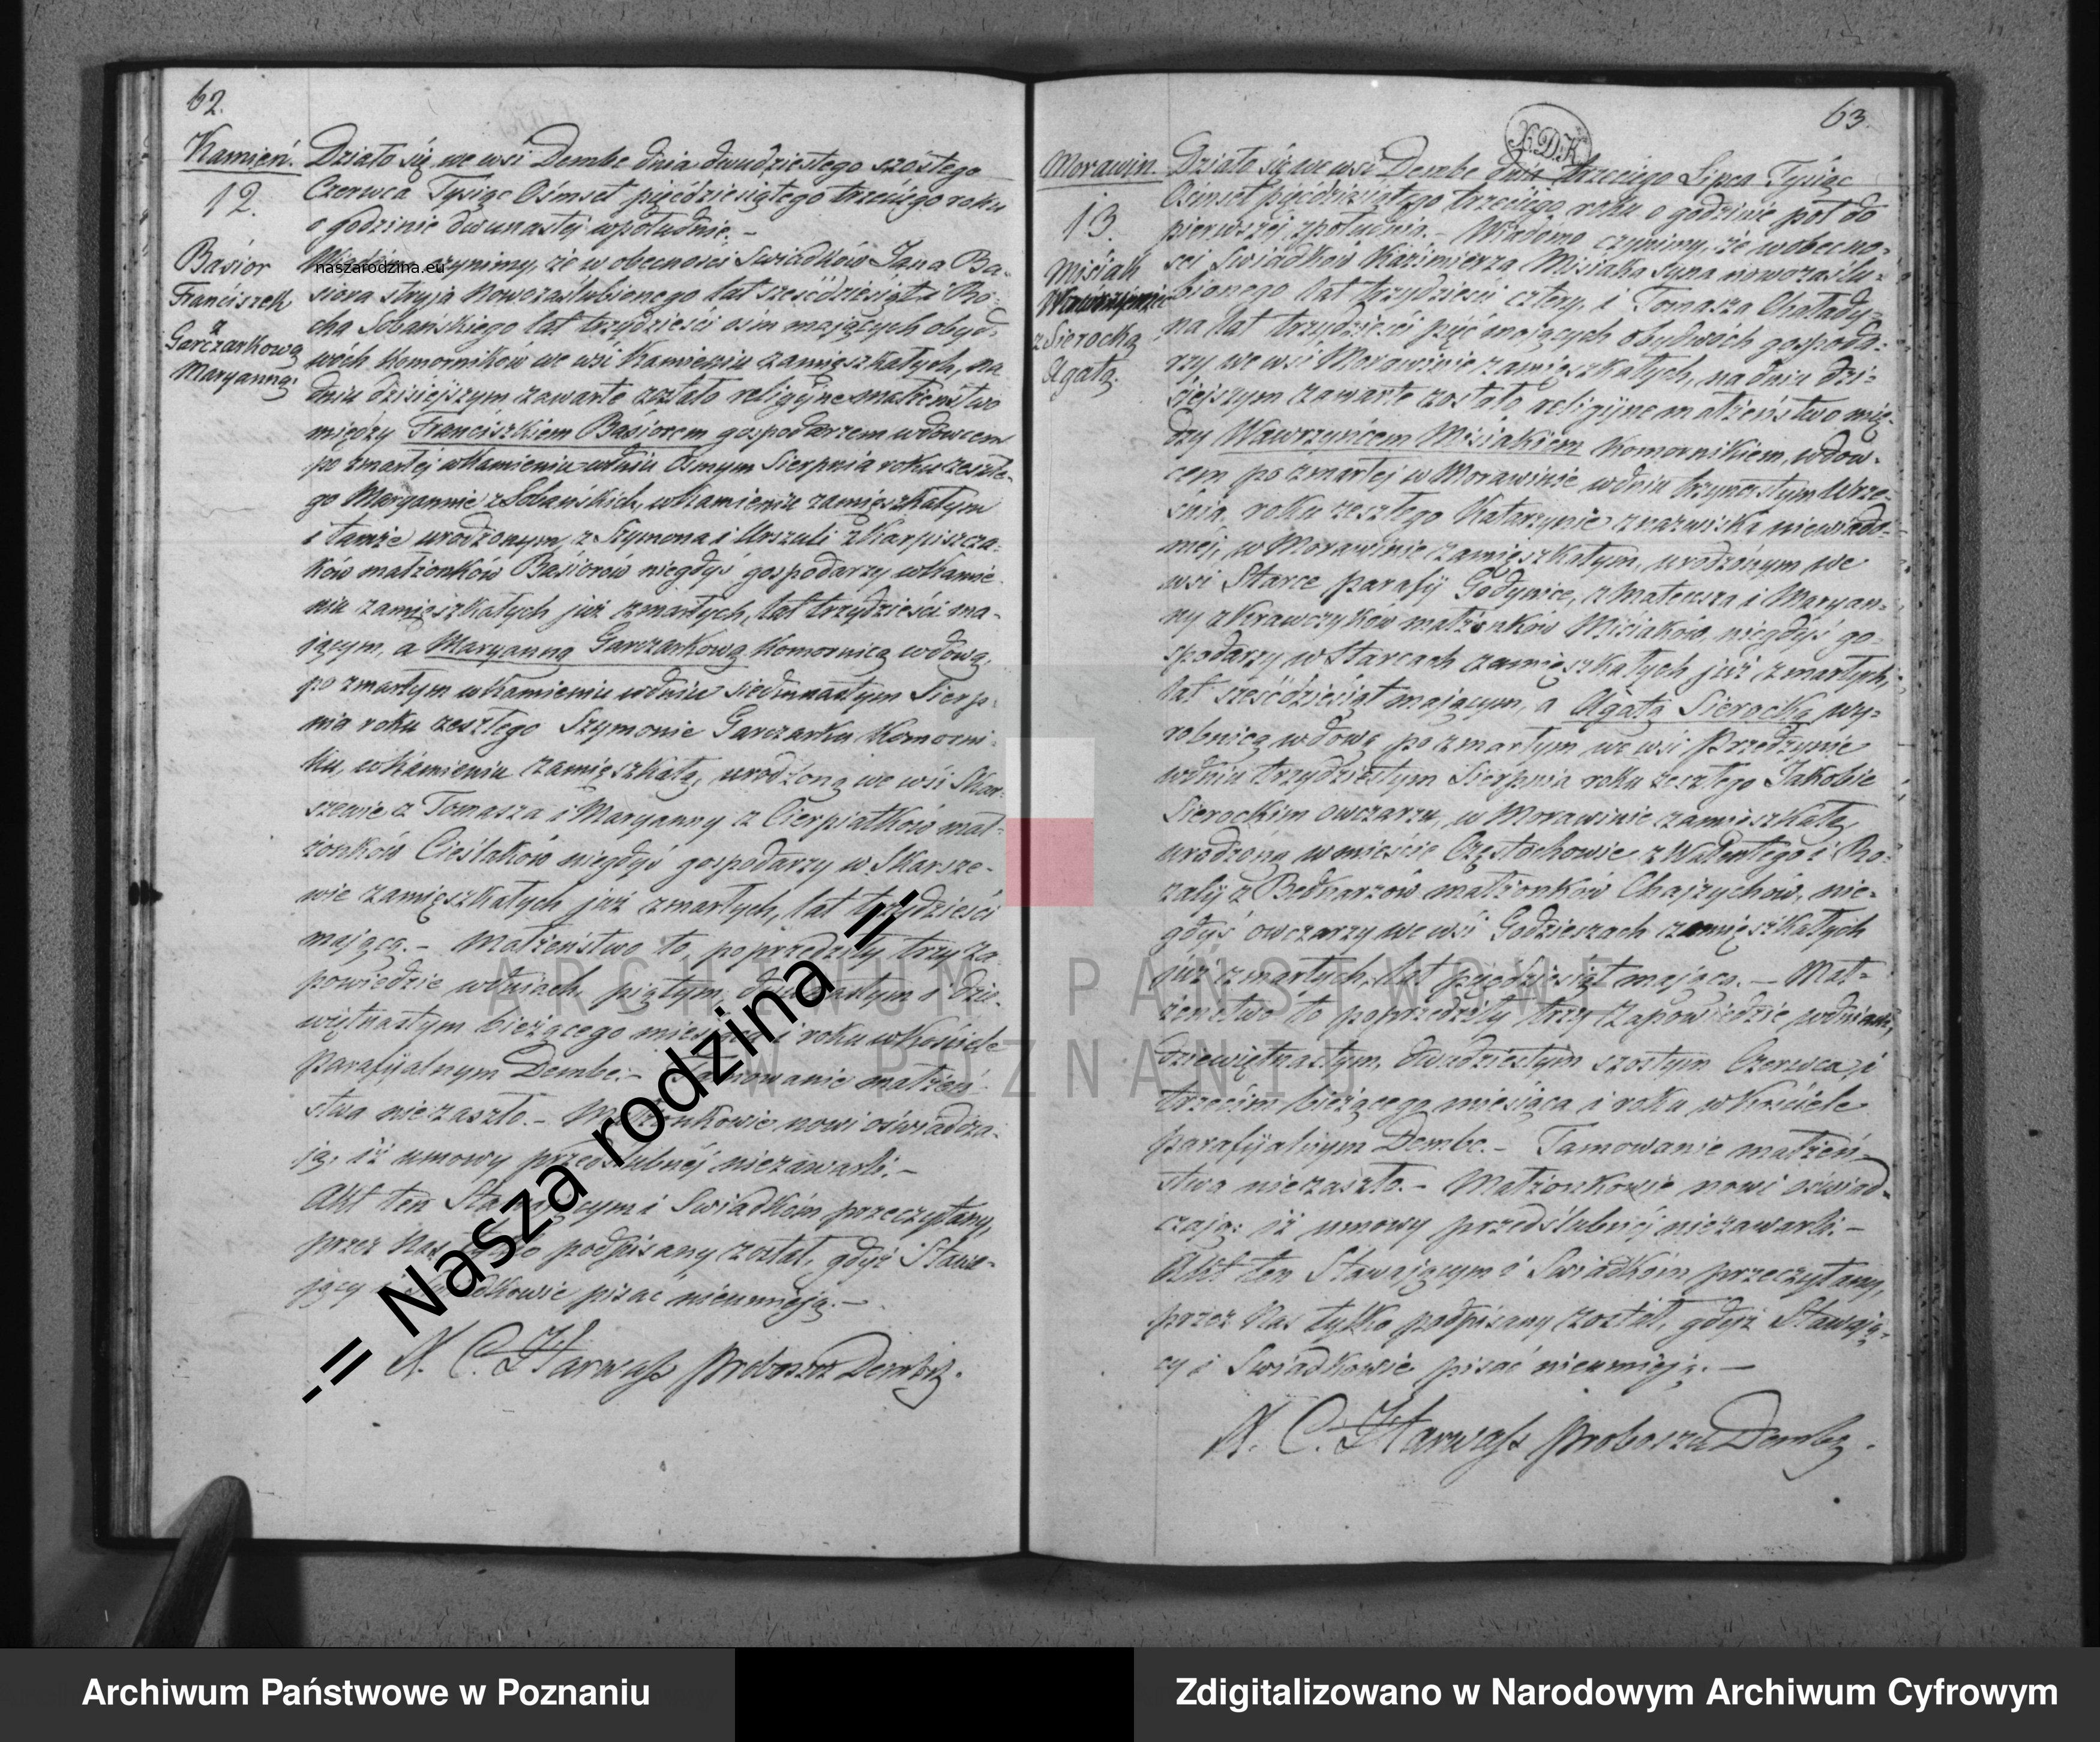 62.
Kamień.
12.
Basior
Franciszek
a
Garczarkową
Maryanną.
Działo się we wsi Dembe dnia dwudziestego szóstego
Czerwca Tysiąc Ośmset pięćdziesiątego trzeciego roku
o godzinie dwunastej w południe. –
czynimy, że w obecności Świadków Jana Ba-
siora stryja Nowozaślubionego lat sześćdziesiąt i Ro-
cha Sobańskiego lat trzydzieści ośm mających obyd-
wóch Komorników we wsi Kamieniu zamięszkałych, na
dniu dzisiejszym zawarte zostało religijne małżeństwo
między Franciszkiem Basiorem gospodarzem wdowcem
po zmarłej w Kamieniu w dniu Osmym Sierpnia roku zeszłe-
go Maryannie z Sobańskich, w Kamieniu zamięszkałym
i tamże urodzonym z Szymona i Urszuli z Karpiszcza-
ków małżonków Basiorów niegdyś gospodarzy w Kamie-
niu zamięszkałych już zmarłych, lat trzydzieści ma-
jącym, a Maryanną Garczarkową Komornicą wdową,
po zmarłym w Kamieniu w dniu siedmnastym Sierp-
nia roku zeszłego Szymonie Garczarku Komorni-
ku, w Kamieniu zamięszkałą, urodzoną we wsi Skar-
szewie z Tomasza i Maryanny z Cierpiatków mał-
żonków Cieślaków niegdyś gospodarzy w Skarsze-
wie zamięszkałych już zmarłych, lat trzydzieści
mającą. – Małżeństwo to poprzedziły trzy za-
powiedzie w dniach piątym, dwunastym i dzie-
więtnastym bieżącego miesiąca i roku w Kościele
parafijalnym Dembe. – Tamowanie małżeń-
stwa nie zaszło. – Małżonkowie nowi oświadcza-
ją, iż umowy przedślubnej niezawarli. –
Akt ten Stawającym i Świadkom przeczytany,
przez Nas tylko podpisany został, gdyż Stawa-
jący i Świadkowie pisać nieumieją. –
X. C. Harwaß Proboszcz Dembiz.
naszarodzina.eu
.:= Nasza rodzina =:
63.
X.D.K.
Morawin.
13.
Misiak
Wawrzyniec
z Sierocką
Agatą.
Działo się we wsi Dembe dnia trzeciego Lipca Tysiąc
Ośmset pięćdziesiątego trzeciego roku o godzinie pół do
pierwszej z południa. – Wiadomo czynimy, że w obecno-
ści Świadków Kazimierza Misiaka syna nowozaślu-
bionego lat trzydzieści cztery, i Tomasza Chałady-
na lat trzydzieści pięć mających obydwóch gospoda-
rzy we wsi Morawinie zamięszkałych, na dniu dzi-
siejszym zawarte zostało religijne małżeństwo mię-
dzy Wawrzyńcem Misiakiem Komornikiem, wdow-
cem po zmarłej w Morawinie w dniu trzynastym Wrze-
śnia roku zeszłego Katarzynie z nazwiska niewiado-
mej, w Morawinie zamięszkałym, urodzonym we
wsi Starce parafij Godynice, z Mateusza i Maryan-
ny z Krawczyków małżonków Misiaków, niegdyś go-
spodarzy w Starcach zamięszkałych już zmarłych,
lat sześćdziesiąt mającym, a Agatą Sierocką wy-
robnicą wdową po zmarłym we wsi Przedzynie
w dniu trzydziestym Sierpnia roku zeszłego Jakobie
Sierockim owczarzu, w Morawinie zamięszkałą,
urodzoną w mieście Częstochowie z Walentego i Ro-
zalij z Bednarzów małżonków Chajzychów, nie-
gdyś owczarzy we wsi Godzieszach zamięszkałych
już zmarłych, lat pięćdziesiąt mającą. – Mał-
żeństwo to poprzedziły trzy zapowiedzie w dniach,
dziewiętnastym, dwudziestym szóstym Czerwca, i
trzecim bieżącego miesiąca i roku w Kościele
parafijalnym Dembe. – Tamowanie małżeń-
stwa nie zaszło. – Małżonkowie nowi oświad-
czają: iż umowy przedślubnej niezawarli. –
Akt ten Stawającym i Świadkom przeczytany,
przez Nas tylko podpisany został, gdyż Stawają-
cy i Świadkowie pisać nieumieją. –
X. C. Harwaß Proboszcz Dembz.
ARCHIWUM PAŃSTWOWE
W POZNANIU
Archiwum Państwowe w Poznaniu
Zdigitalizowano w Narodowym Archiwum Cyfrowym